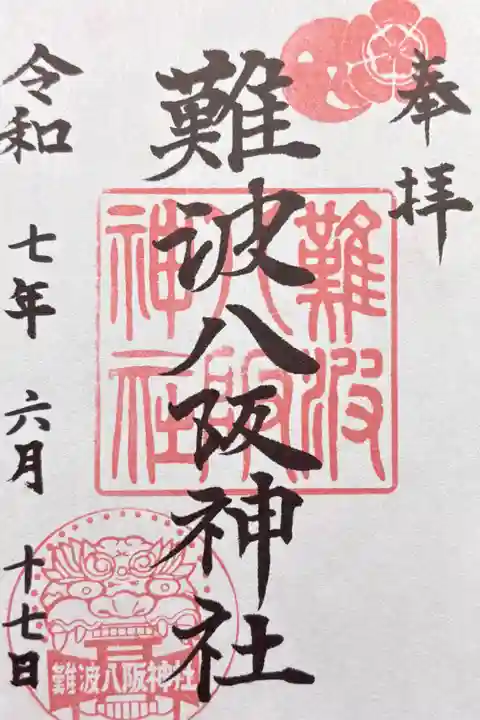 奉拝
難波八阪神社
令和 七年 六月 十七日
難波
八阪
神社
難波八阪神社